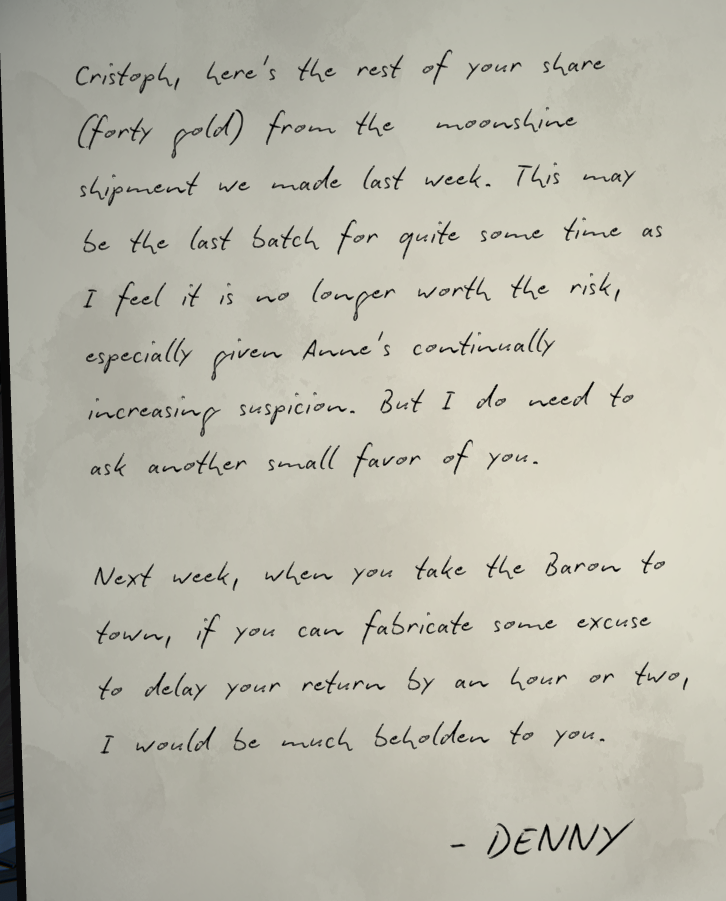 Cristoph, here's the rest of your share
(forty gold) from the moonshine
shipment we made last week. This may
be the last batch for quite some time as
I feel it is no longer worth the risk,
especially given Anne's continually
increasing suspicion. But I do need to
ask another small favor of you.
Next week, when you take the Baron to
town, if you can fabricate some excuse
to delay your return by an hour or two,
I would be much beholden to you.
- DENNY